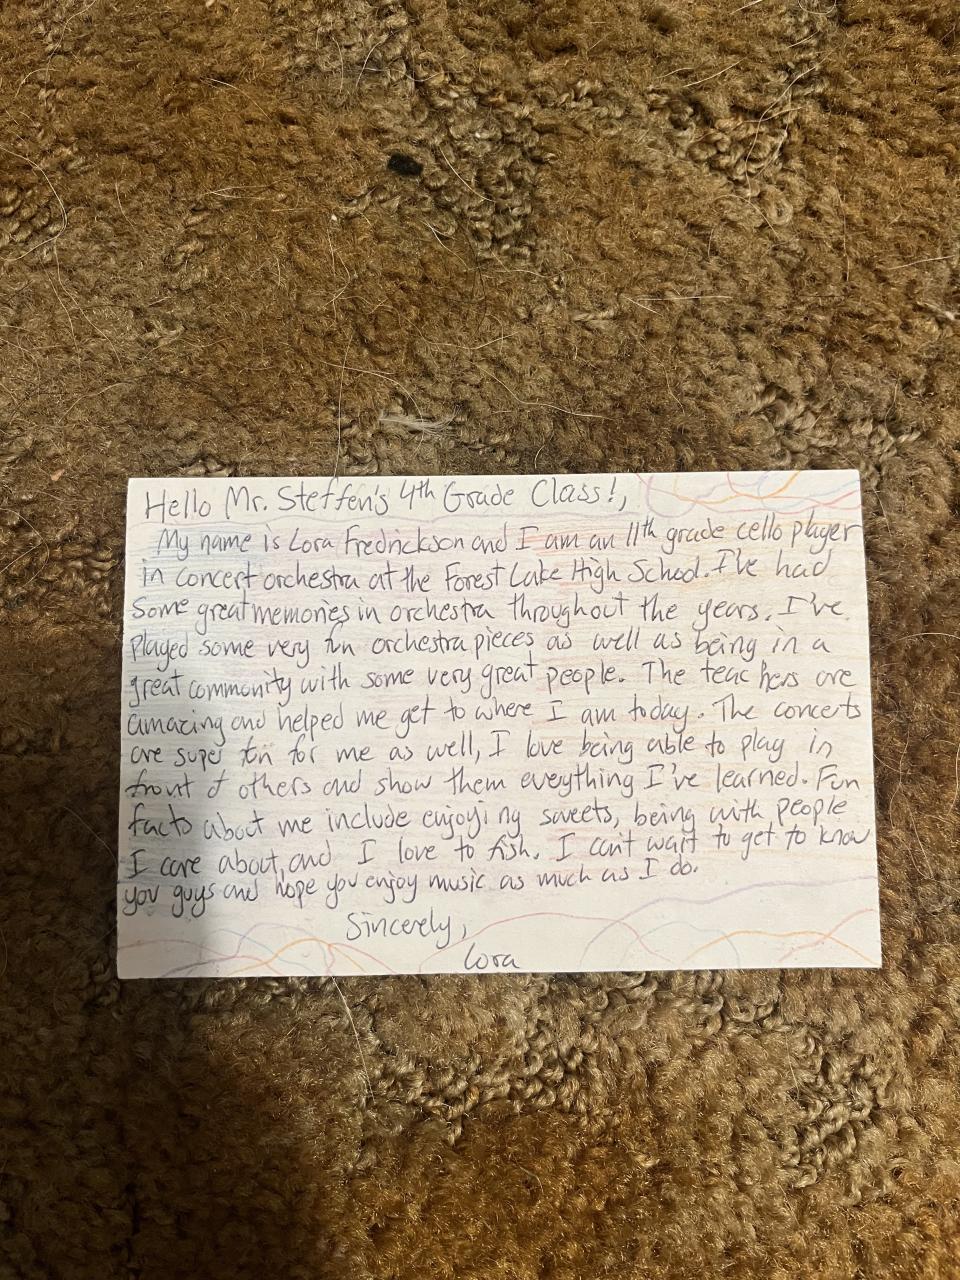 Hello Mr. Steffen's 4th Grade Class!,
My name is Lora Fredrickson and I am an 11th grade cello player
in concert orchestra at the Forest Lake High School. I've had
some great memories in orchestra throughout the years. I've
played some very fun orchestra pieces as well as being in a
great community with some very great people. The teachers are
amazing and helped me get to where I am today. The concerts
are super fun for me as well, I love being able to play in
front of others and show them everything I've learned. Fun
facts about me include enjoying sweets, being with people
I care about, and I love to fish. I can't wait to get to know
you guys and hope you enjoy music as much as I do.
Sincerely,
Lora